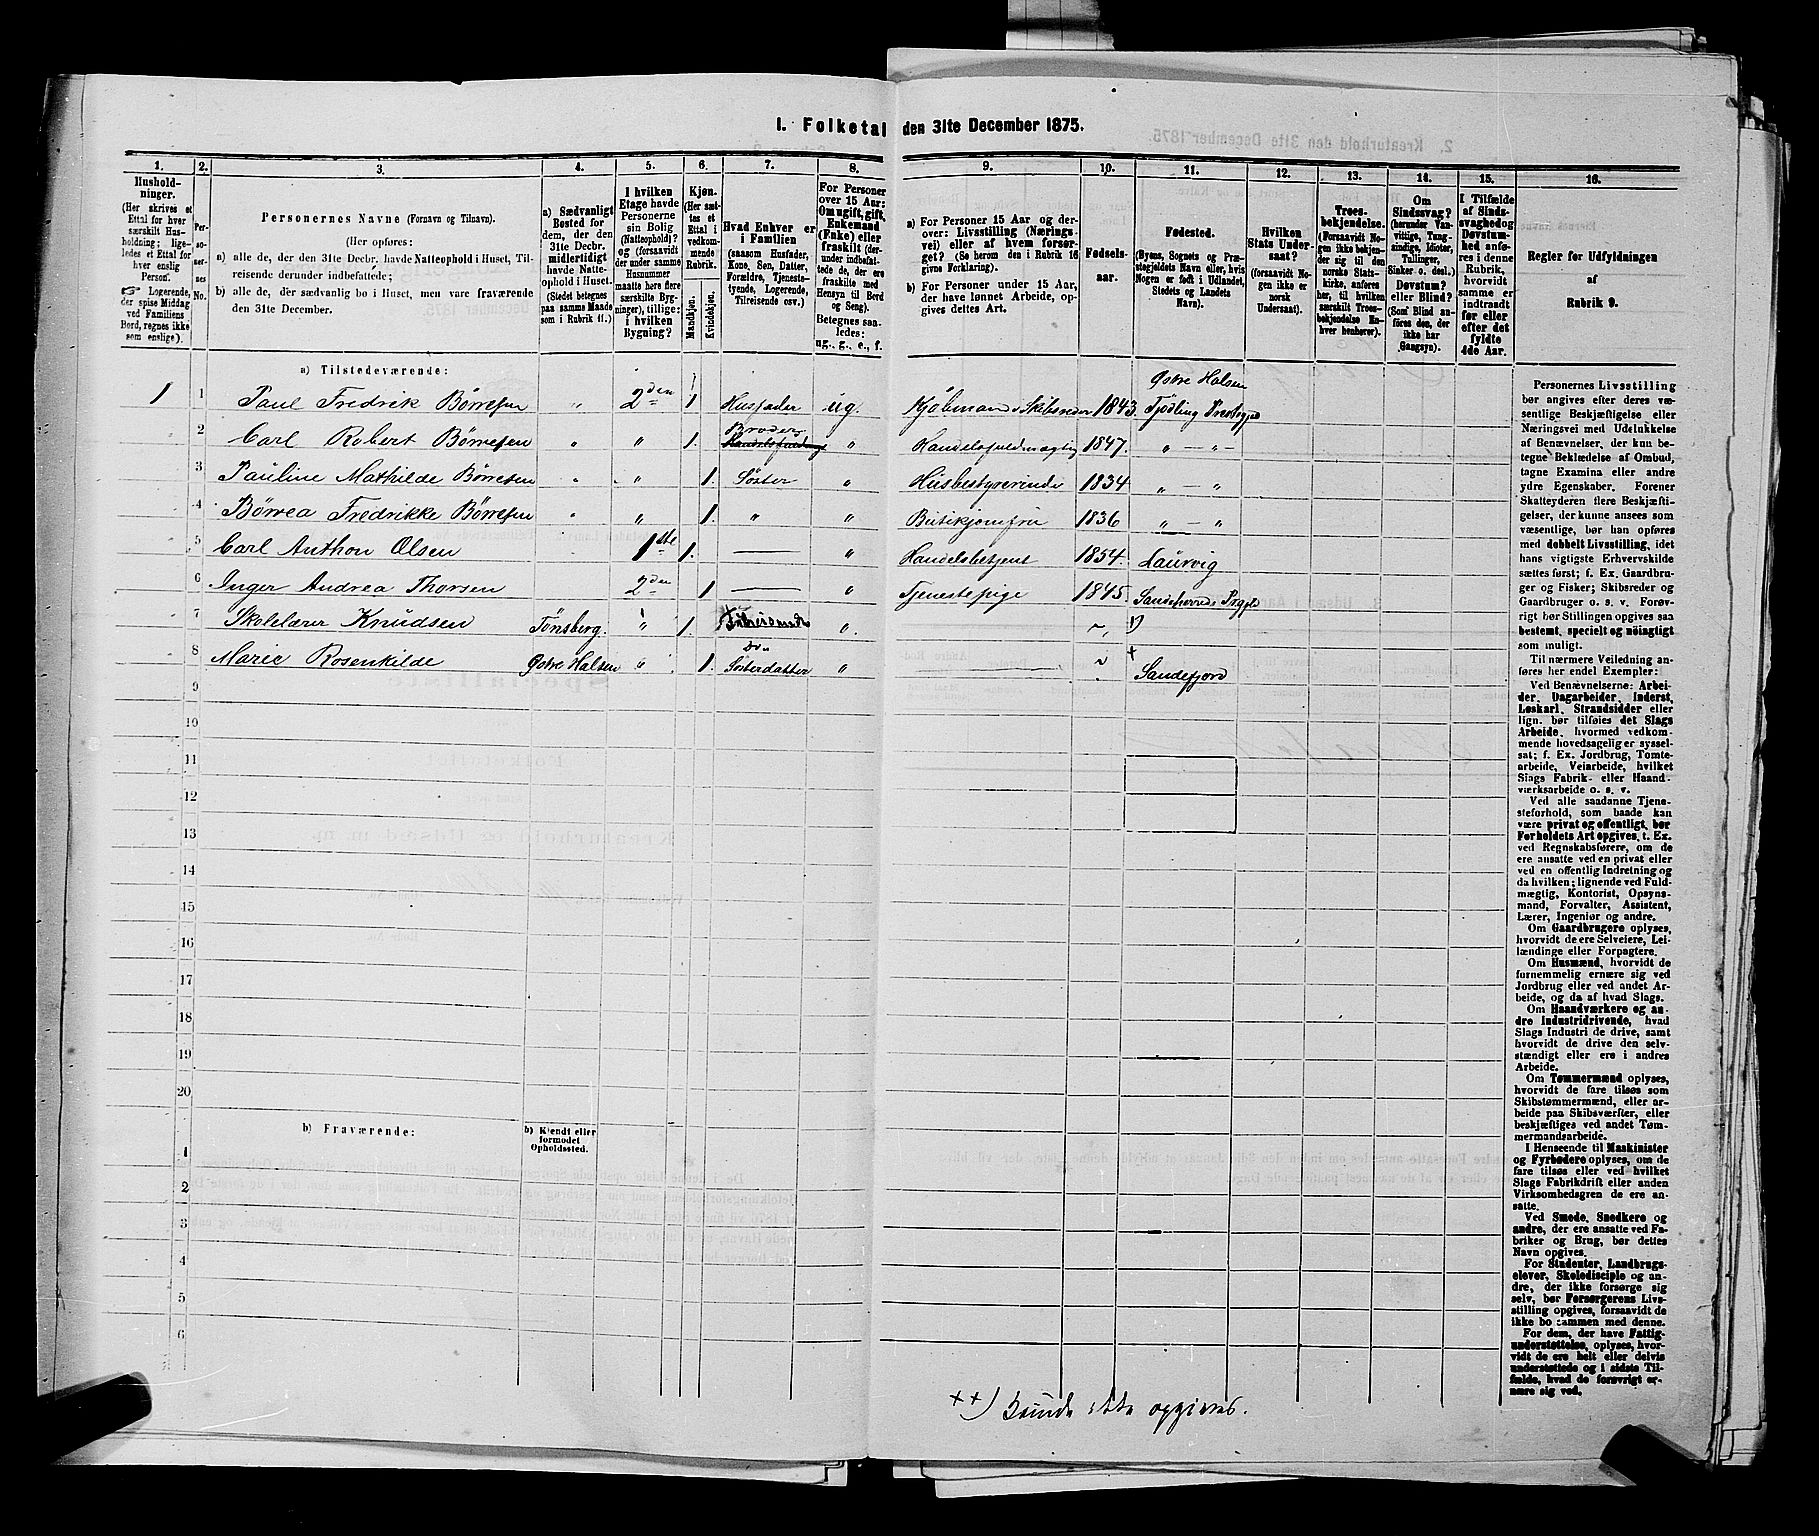 1. Folketal den 31te December 1875.
1. 2. 3. 4. 5. 6. 7. 8. 9. 10. 11. 12. 13. 14. 15. 16.
Husholdninger.
(Her skrives et
Ettal for hver
særskilt Husholdning;
ligeledes et Ettal for
hver enslig
Person.
Logerende,
der spise Middag
ved Familiens
Bord, regnes ikke
som enslige).
Personernes No.
Personernes Navne (Fornavn og Tilnavn).
(Her opføres:
a) alle de, der den 31te Decbr. havde Natteophold i Huset, Tilreisende derunder indbefattede;
b) alle de, der sædvanlig bo i Huset, men vare fraværende
den 31te December.
a) Sædvanligt
Bosted for
dem, der den
31te Decbr.
midlertidigt
havde Natteophold i Huset.
(Stedet betegnes
paa samme Maade
som i Rubrik 11.)
I hvilken
Etage havde
Personerne
sin Bolig
(Natteophold)?
og (forsaavidt
der under samme
Husnummer
maatte høre flere
særskilte Bygninger), tillige:
i hvilken
Bygning?
Kjøn.
(Her sættes et
Ettal i
vedkommende
Rubrik.
Mandkjøn.
Kvindekjøn.
Hvad Enhver er
i Familien
(saasom Husfader,
Kone, Søn, Datter,
Forældre, Tjenestetyende, Logerende,
Tilreisende osv.)
For Personer
over 15 Aar:
Om ugift, gift,
Enkemand
(Enke) eller
fraskilt (derunder indbefattede de, der ere
fraskilte med
Hensyn til Bord
og Seng).
Betegnes saaledes:
ug., g., e., f.
a) For Personer 15 Aar og derover: Livsstilling (Næringsvei) eller af hvem forsørget? (Se herom den i Rubrik 16
givne Forklaring).
b) For Personer under 15 Aar,
der have lønnet Arbeide, opgives dettes Art.
Fødselsaar.
Fødested.
(Byens, Sognets og Præstegjeldets Navn eller, hvis
Nogen er født i Udlandet,
Stedets og Landets
Navn).
Hvilken
Stats Undersaat?
(forsaavidt Nogen ikke er
norsk
Undersaat).
Troesbekjendelse.
(Forsaavidt Nogen ikke bekjender sig til den
norske Statskirke, anføres
her, til hvilken
særskilt Troesbekjendelse Enhver henhører).
Om
Sindssvag?
(herunder Vanvittige, Tungsindige, Idioter,
Tullinger,
Sinker o. desl.)
Døvstum?
eller Blind?
(Som Blind anføres den, der
ikke har
Gangsyn).
I Tilfælde
af Sindssvaghed og
Døvstumhed anføres i denne
Rubrik,
hvorvidt
samme er
indtraadt
før eller
efter det
fyldte
4de Aar.
Regler for Udfyldningen
af
Rubrik 9.
a) Tilstedeværende:
1 1 Paul Fredrik Börresen " 2den 1 Husfader ug. Kjöbmand & Skibsreder 1843. Östre Halsen Tjödling Prestegjd
2 Carl Robert Börresen " " 1. Broder " Handelsfuldmægtig 1847. " — " —
3 Pauline Mathilde Börresen " " 1. Söster " Husbestyrerinde 1834 " — "
4 Börrea Fredrikke Börresen " " 1. " " Butikjomfru 1836 " — "
5 Carl Anthon Olsen 1ste 1. — " Handelsbetjent 1854. Laurvig
6 Inger Andrea Thorsen 2den 1 — " Tjenestepige 1845. Sandeherreds Prgjld
7 Skolelærer Knudsen Tönsberg. " 1. "
8 Marie Rosenkilde Östre Halsen " 1. Sösterdatter " Sandefjord
9
10
11
12
13
14
15
16
17
18
19
20
b) Fraværende:
b) Kjendt eller
formodet
Opholdssted.
1
2
3
4
5
6
Personernes Livsstilling
bør angives efter deres væsentlige Beskjæftigelse eller
Næringsvei med Udelukkelse
af Benævnelser, der kun betegne Beklædelse af Ombud,
tagne Examina eller andre
ydre Egenskaber. Forener
Skatteyderen flere Beskjæftigelser, der kunne ansees som
væsentlige, bør han opføres
med dobbelt Livsstilling, idet
hans vigtigste Erhvervskilde
sættes først; f. Ex. Gaardbruger og Fisker; Skibsreder og
Gaardbruger o. s. v. Forøvrigt bør Stillingen opgives saa
bestemt, specielt og nøiagtigt
som muligt.
Til nærmere Veiledning anføres her endel Exempler:
Ved Benævnelserne: Arbeider, Dagarbeider, Inderst,
Løskarl, Strandsidder eller
lign. bør tilføies det Slags
Arbeide, hvormed vedkommende hovedsagelig er sysselsat; f. Ex. Jordbrug, Tomtearbeide, Veiarbeide, hvilket
Slags Fabrik- eller Haandværksarbeide o. s. v.
Ved alle saadanne Tjenesteforhold, som baade kan
være privat og offentligt, bør
Forholdets Art opgives, t. Ex.
ved Regnskabsførere, om de
ere ansatte ved en privat eller
ved en offentlig Indretning og
da hvilken; lignende ved Fuldmægtig, Kontorist, Opsynsmand, Forvalter, Assistent,
Lærer, Ingeniør og andre.
Om Gaardbrugere oplyses,
hvorvidt de ere Selveiere, Leilændinge eller Forpagtere.
Om Husmænd, hvorvidt de
fornemmelig ernære sig ved
Jordbrug eller ved andet Arbeide, og da af hvad Slags.
Om Haandværkere og andre Industridrivende, hvad
Slags Industri de drive, samt
hvorvidt de drive den selvstændigt eller ere i andres
Arbeide.
Om Tømmermænd oplyses,
hvorvidt de fare tilsøs som
Skibstømmermænd, eller arbeide paa Skibsværfter, eller
beskjæftiges ved andet Tømmermandsarbeide.
I Henseende til Maskinister
og Fyrbødere oplyses, om de
fare tilsøs eller ved hvilket
Slags Fabrikdrift eller anden
Virksomhedsgren de ere ansatte.
Ved Smede, Snedkere og
andre, der ere ansatte ved Fabriker og Brug, bør dettes
Navn opgives.
For Studenter, Landbrugselever, Skoledisciple og andre, der ikke forsørge sig
selv, bør Forsørgerens Livsstilling opgives, forsaavidt de
ikke bo sammen med denne.
For dem, der have Fattigunderstøttelse, oplyses, hvorvidt de ere helt eller delvis
understøttede og i sidste Tilfælde, hvad de forøvrigt ernære sig ved.
++) Kunde ikke opgives.